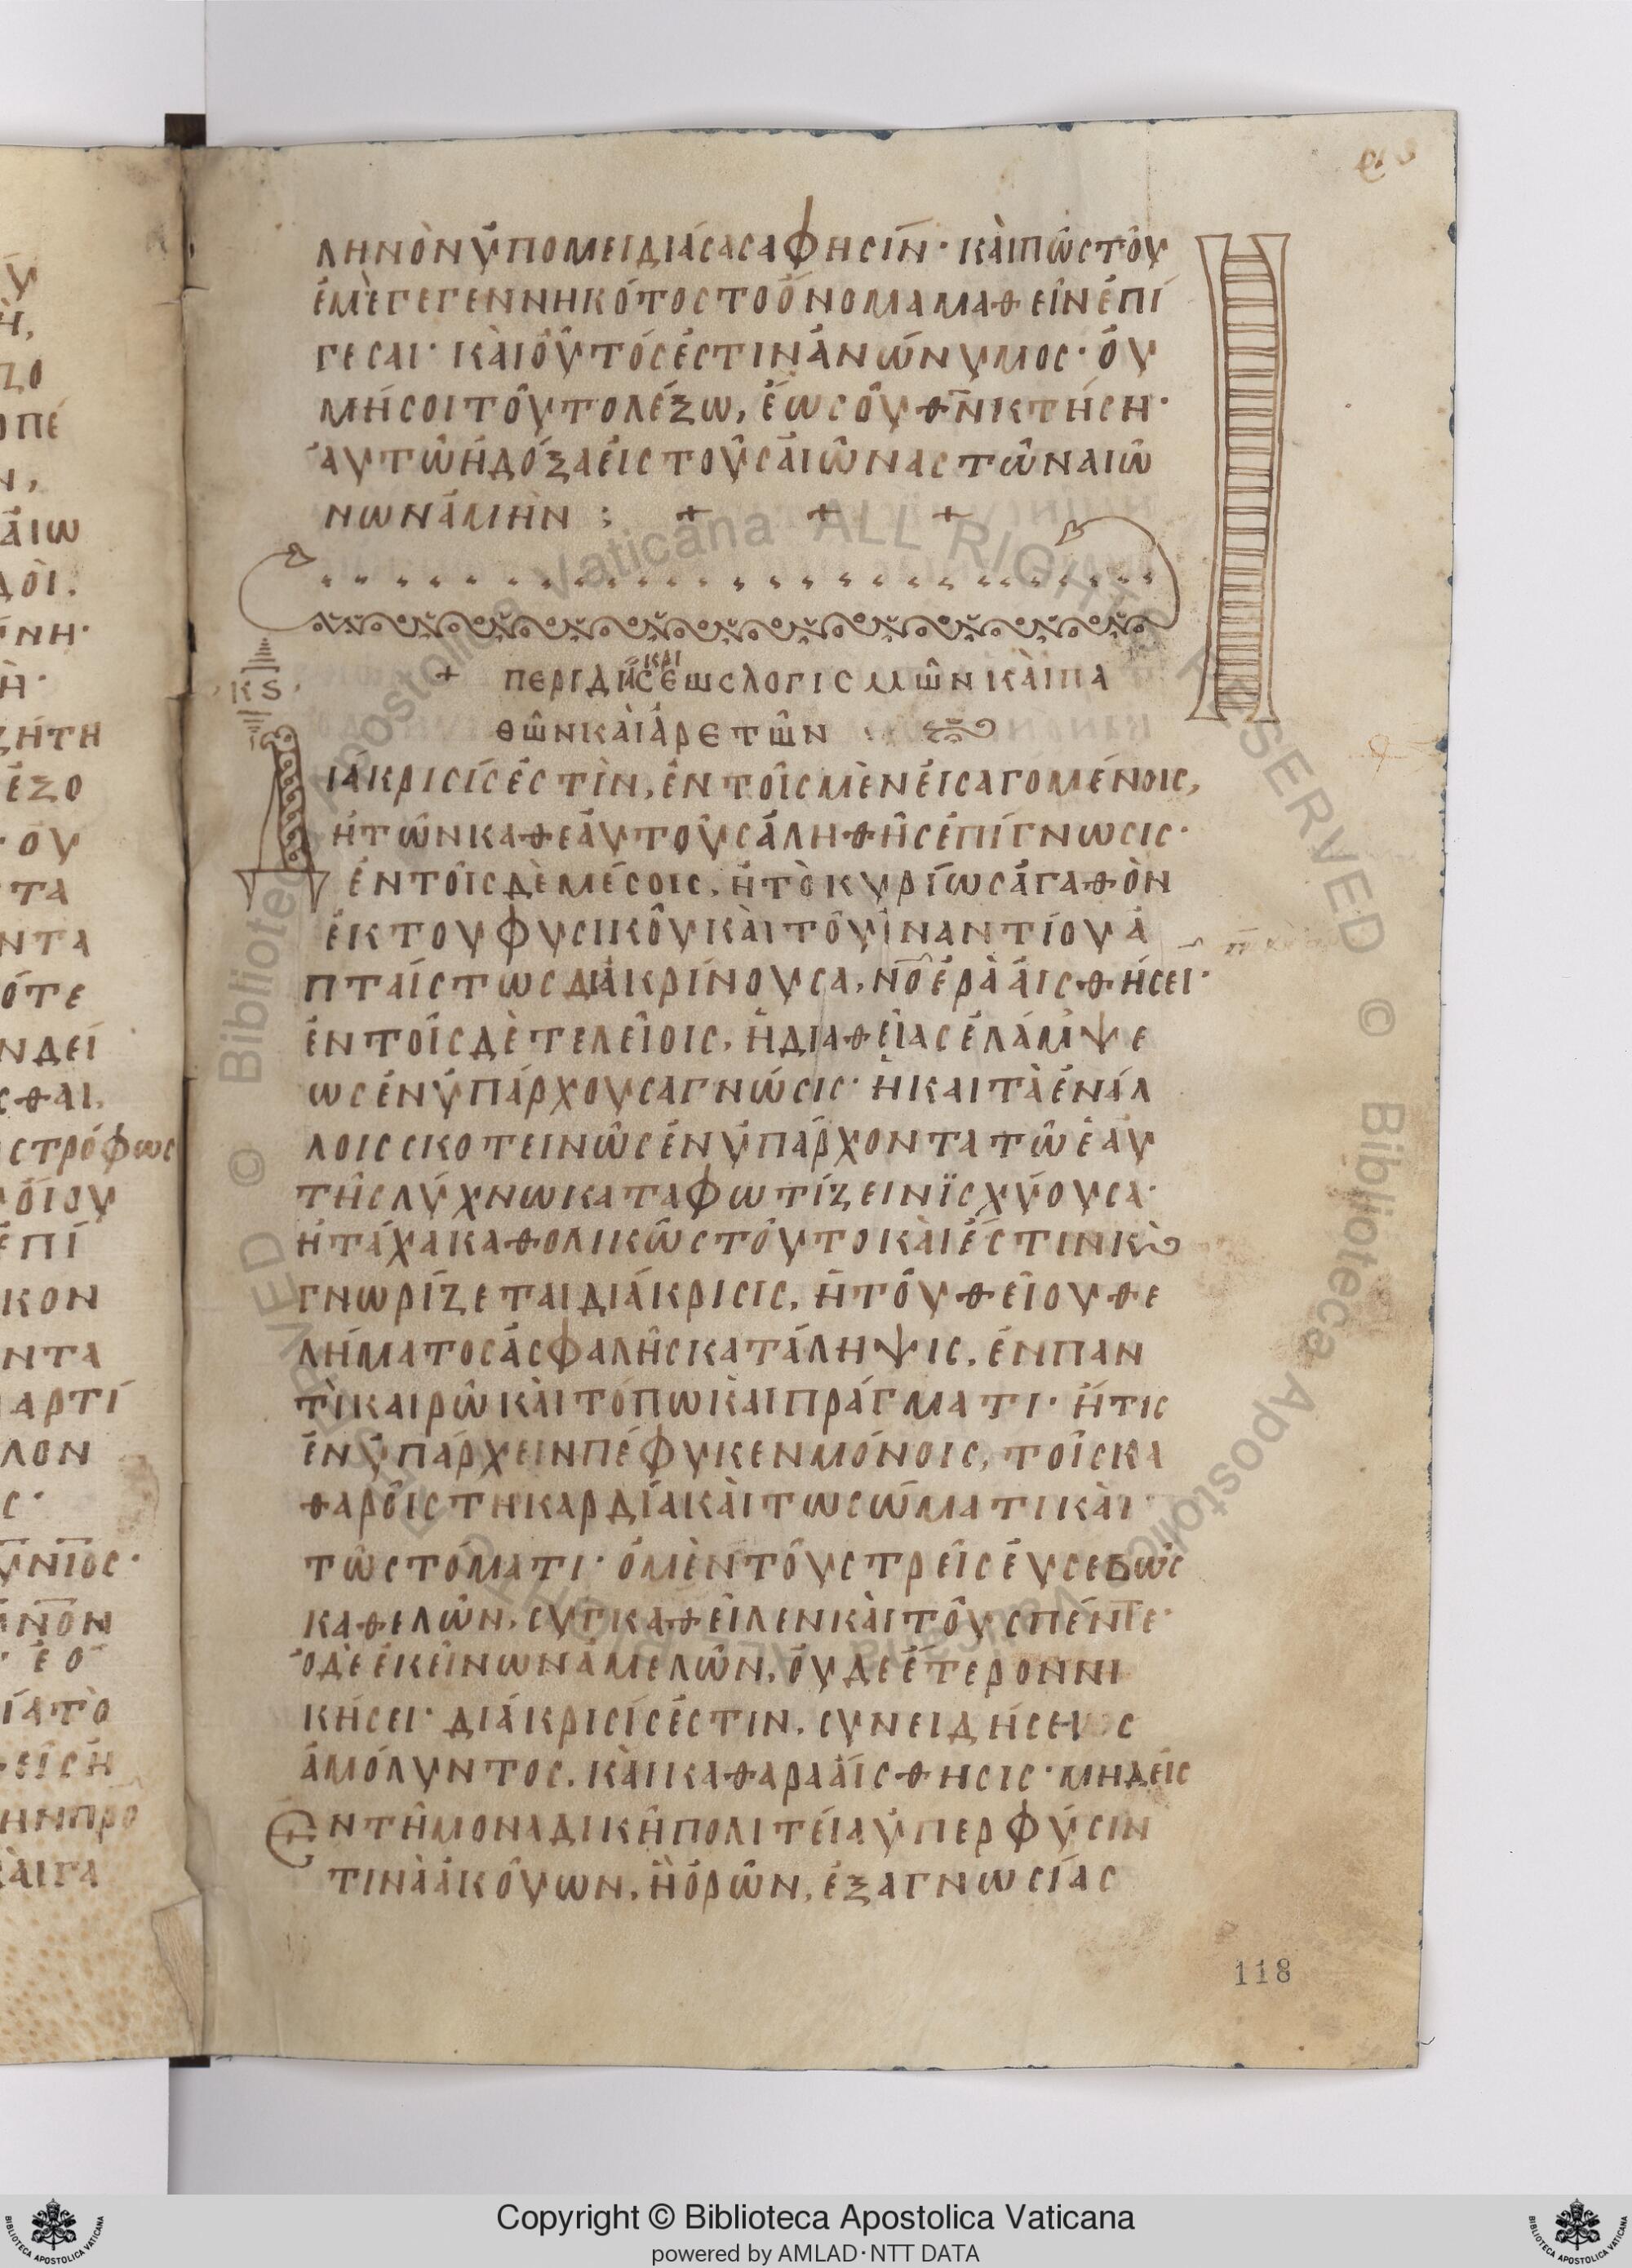 ληνὸν ὑπομειδιάσασα φησίν· καὶ πῶς τοῦ
ἐμὲ γεγεννηκότος τὸ ὄνομα μαθεῖν ἐπί
γεσαι· καὶ οὗτός ἐστιν ἀνώνυμος· οὐ
μή σοι τοῦτο λέξω, ἕως οὗ θν̄ κτήσῃ·
αὐτῷ ἡ δόξα εἰς τοὺς αἰῶνας τῶν αἰώ
νων ἀμήν ; + + +
+ περὶ δι κρι σεως λογισμῶν καὶ πα
κς
θῶν καὶ ἀρετῶν
Διάκρισίς ἐστὶν, ἐν τοῖς μὲν εἰσαγομένοις,
ἡ τῶν καθ ἑαυτοὺς ἀληθὴς ἐπίγνωσις·
ἐν τοῖς δὲ μέσοις, ἡ τὸ κυρίως ἀγαθὸν
ἐκ τοῦ φυσικοῦ καὶ τοῦ ἐναντίου ἀ
πταίστως διακρίνουσα, νοερὰ αἰσθήσει·
ἐν τοῖς δὲ τελείοις, ἡ δια θείας ἐλάμψε
ως ἐνυπάρχουσα γνώσις· ἡ και τὰ ἐν ἄλ
λοις σκοτεινῶς ἐνυπάρχοντα τῷ ἑαυ
τῆς λύχνω καταφωτίζειν ϊσχύουσα·
ἡ τάχα καθολικῶς τοῦτο καὶ ἔστιν κ
γνωρίζεται διάκρισις, ἡ τοῦ θείου θε
λήματος ἀσφαλὴς κατάληψις, ἐν παν
τὶ καιρῷ καὶ τόπω καὶ πράγματι· ἥτις
ἐνυπάρχειν πέφυκεν μόνοις, τοῖς κα
θαροῖς τη καρδία καὶ τω σώματι καὶ
τῷ στόματι· ὁ μὲν τοὺς τρεῖς εὐσεβῶς
καθελὼν, συγκαθεῖλεν καὶ τοὺς πέντε·
ὁ δε ἐκείνων ἀμελῶν, οὐδε ἕτερον νι
κήσει· διάκρισίς ἐστιν, συνειδήσεως
ἀμόλυντος, καὶ καθαρα αἴσθησις· μηδεὶς
Ἐν τῇ μοναδικῇ πολιτεία ὑπερ φύσιν
τινὰ ἀκούων, ἢ ὁρῶν, ἐξ αγνωσίας
118
Copyright © Biblioteca Apostolica Vaticana
powered by AMLAD·NTT DATA